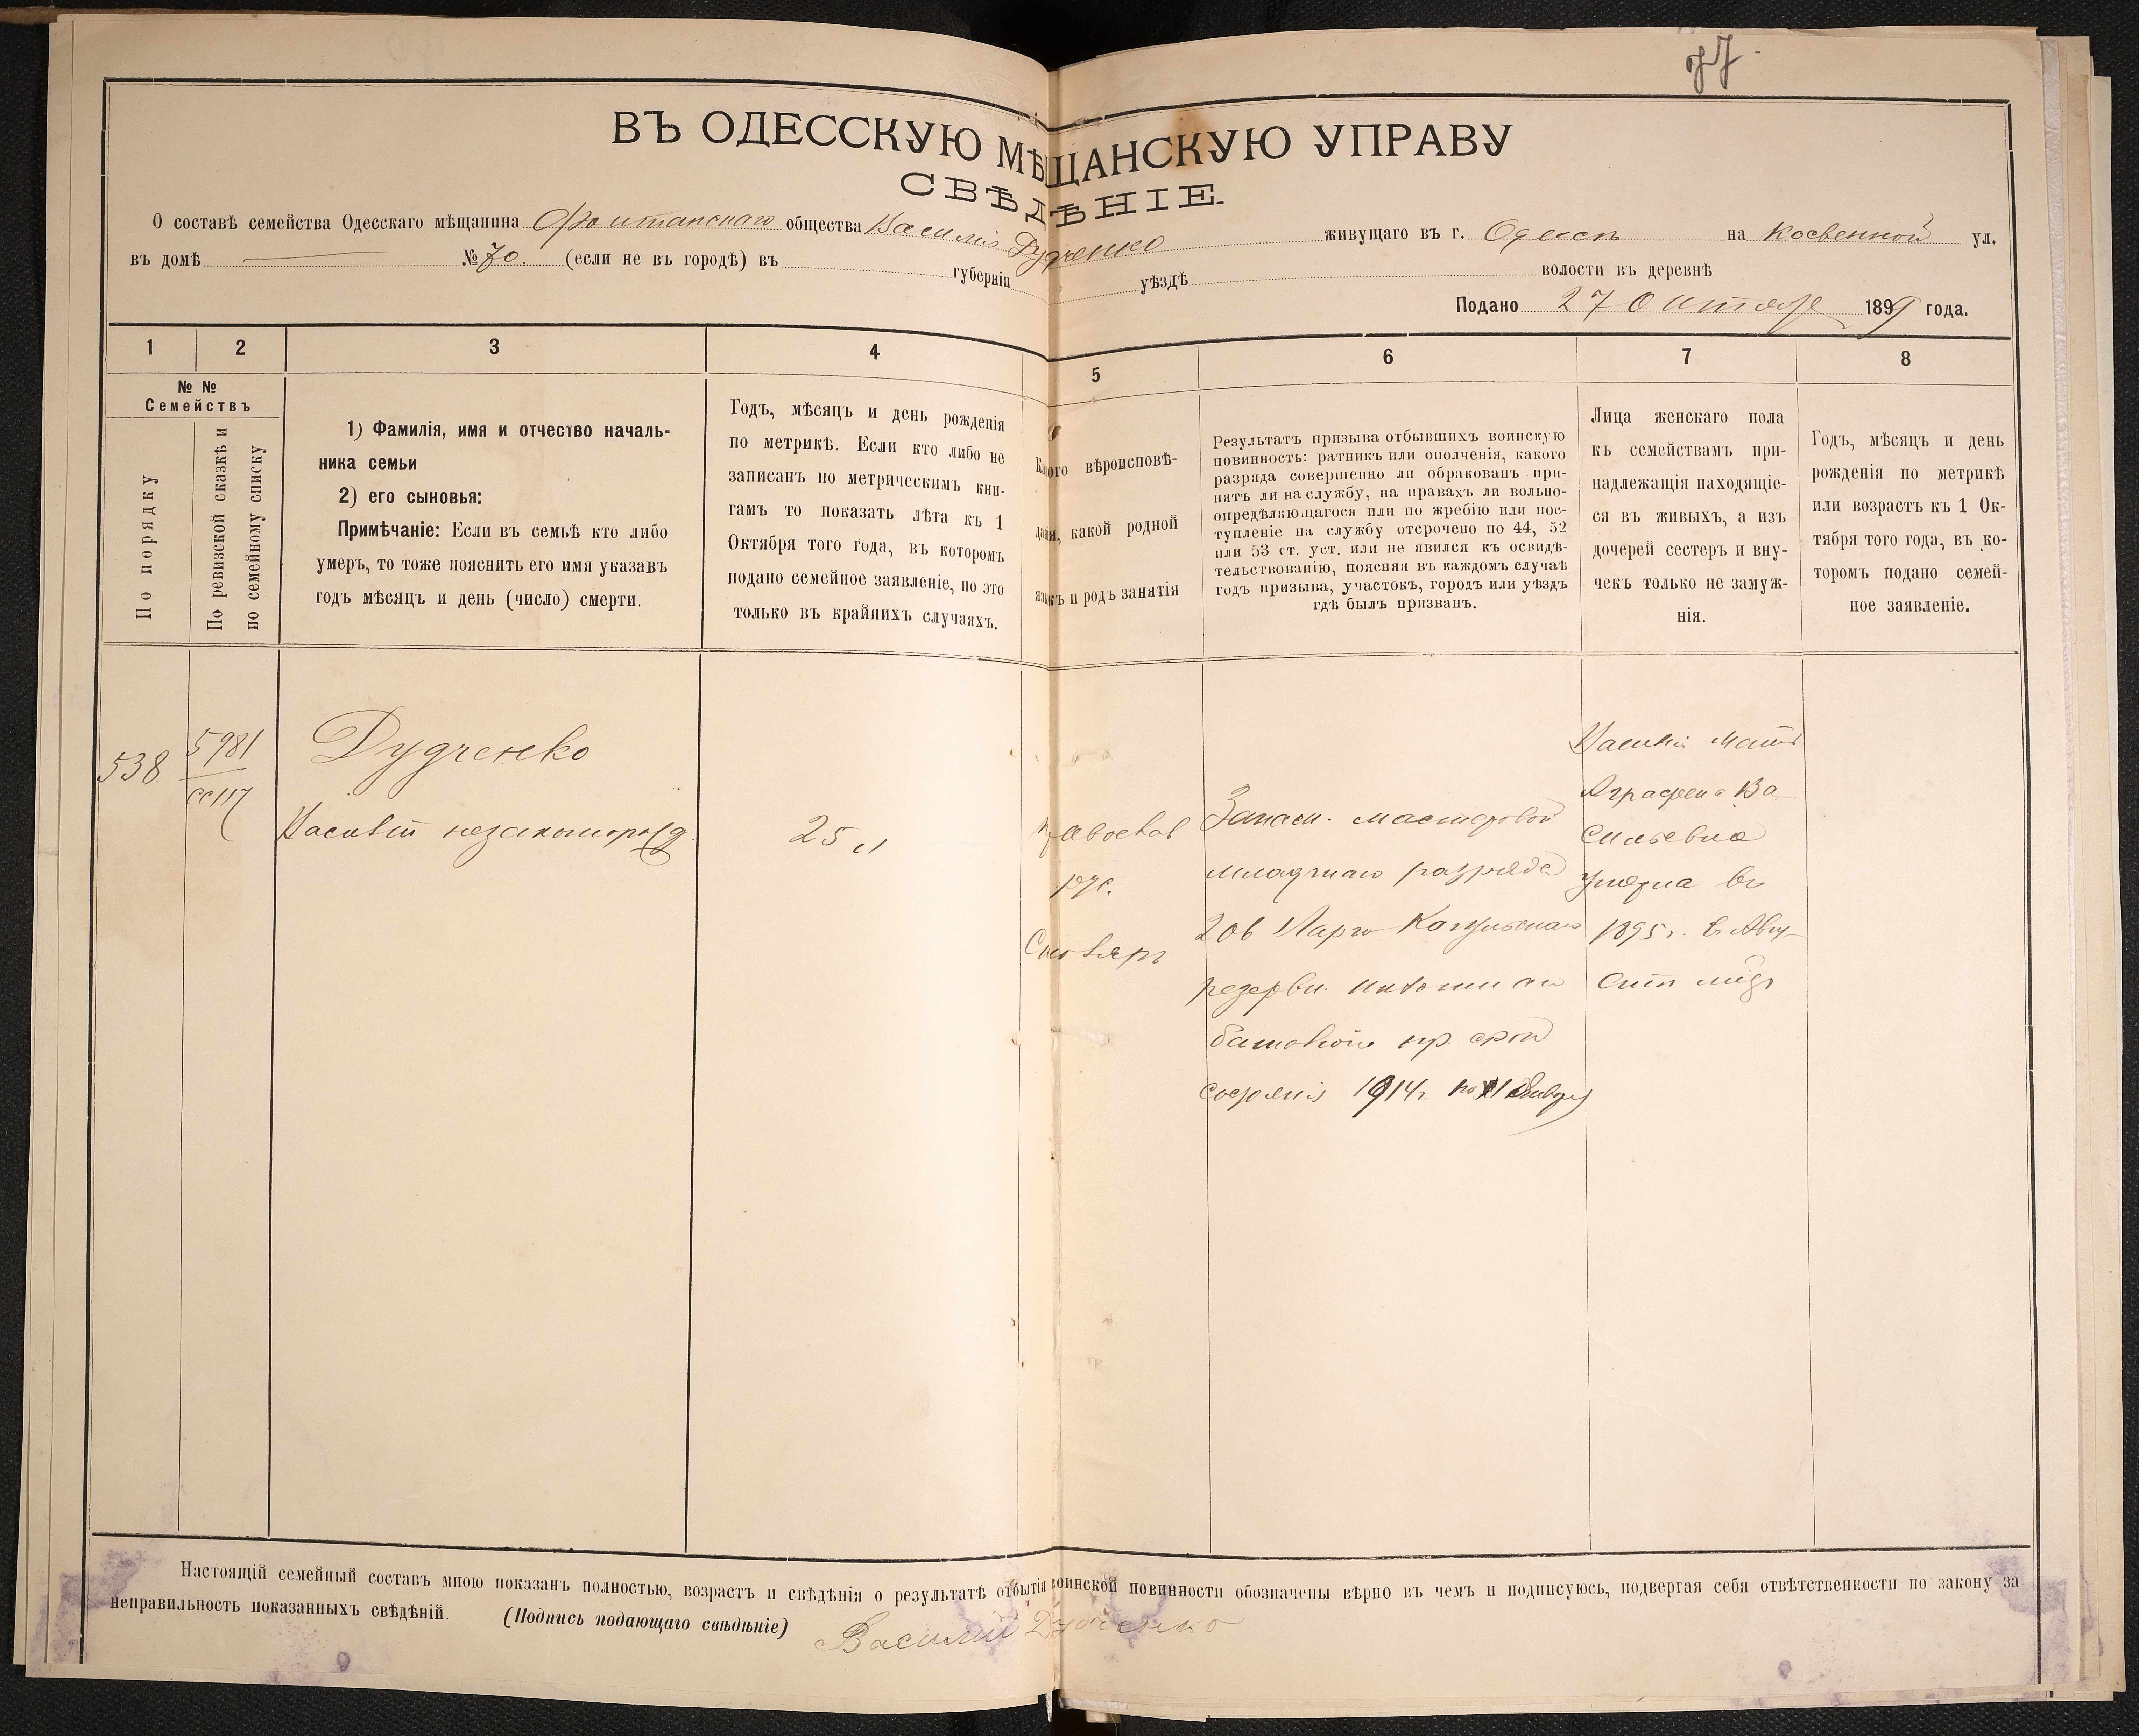 77
ВЪ ОДЕССКУЮ МѢЩАНСКУЮ УПРАВУ
СВѢДѢНІЕ.
О составѣ семейства Одесскаго мѣщанина Фонтанскаго общества Василія Дудченко живущаго въ г. Одессѣ на Косвенной ул.
въ домѣ № 70. (если не въ городѣ) въ губерніи уѣздѣ волости въ деревнѣ
Подано 27 Октября 1899 года.
1 2 3 4 5 6 7 8
№ №
Семействъ
По порядку
По ревизской сказкѣ и
по семейному списку
1) Фамилія, имя и отчество началь-
ника семьи
2) его сыновья:
Примѣчаніе: Если въ семьѣ кто либо
умеръ, то тоже пояснить его имя указавъ
годъ мѣсяцъ и день (число) смерти.
Годъ, мѣсяцъ и день рожденія
по метрикѣ. Если кто либо не
записанъ по метрическимъ кни-
гамъ то показать лѣта къ 1
Октября того года, въ которомъ
подано семейное заявленіе, но это
только въ крайнихъ случаяхъ.
Какого вѣроисповѣ-
данія, какой родной
языкъ и родъ занятія
Результатъ призыва отбывшихъ воинскую
повинность: ратникъ или ополченія, какого
разряда совершенно ли обракованъ при-
нятъ ли на службу, на правахъ ли вольно-
опредѣляющагося или по жребію или пос-
тупленіе на службу отсрочено по 44, 52
или 53 ст. уст. или не явился къ освидѣ-
тельствованію, поясняя въ каждомъ случаѣ
годъ призыва, участокъ, городъ или уѣздъ
гдѣ былъ призванъ.
Лица женскаго пола
къ семействамъ при-
надлежащія находящіе-
ся въ живыхъ, а изъ
дочерей сестеръ и вну-
чекъ только не замуж-
нія.
Годъ, мѣсяцъ и день
рожденія по метрикѣ
или возрастъ къ 1 Ок-
тября того года, въ ко-
торомъ подано семей-
ное заявленіе.
538
5981
117
Дудченко
Василій незаконорожд
25 л
Православ
рус.
Столяръ
Запасн. мастеровой
младшаго разряда
206 Ларго Кагульскаго
резервн.
баталіона
состоянія 1914 г. по 1 Января
Василія Мать
Аграфена Ва-
сильевна
умерла въ
1895 г. въ Авгу-
стѣ мѣс
Настоящій семейный составъ мною показанъ полностью, возрастъ и свѣдѣнія о результатѣ отбытія воинской повинности обозначены вѣрно въ чемъ и подписуюсь, подвергая себя отвѣтственности по закону за
неправильность показанныхъ свѣдѣній. (Подпись подающаго свѣдѣніе) Василий Дудченко